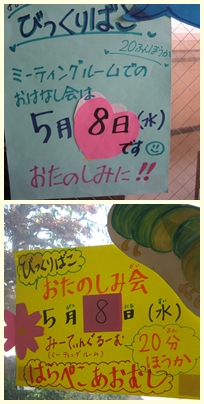 びっくりばこ
20ふんほうか
ミーティングルームでの
おはなし会は
5月8日(水)
です
おたのしみに!!
びっくりばこ
おたのしみ会
5月8日(水)
みーてぃんぐるーむ
(ミーティングルーム)
20分
ほうか
はらぺこあおむし